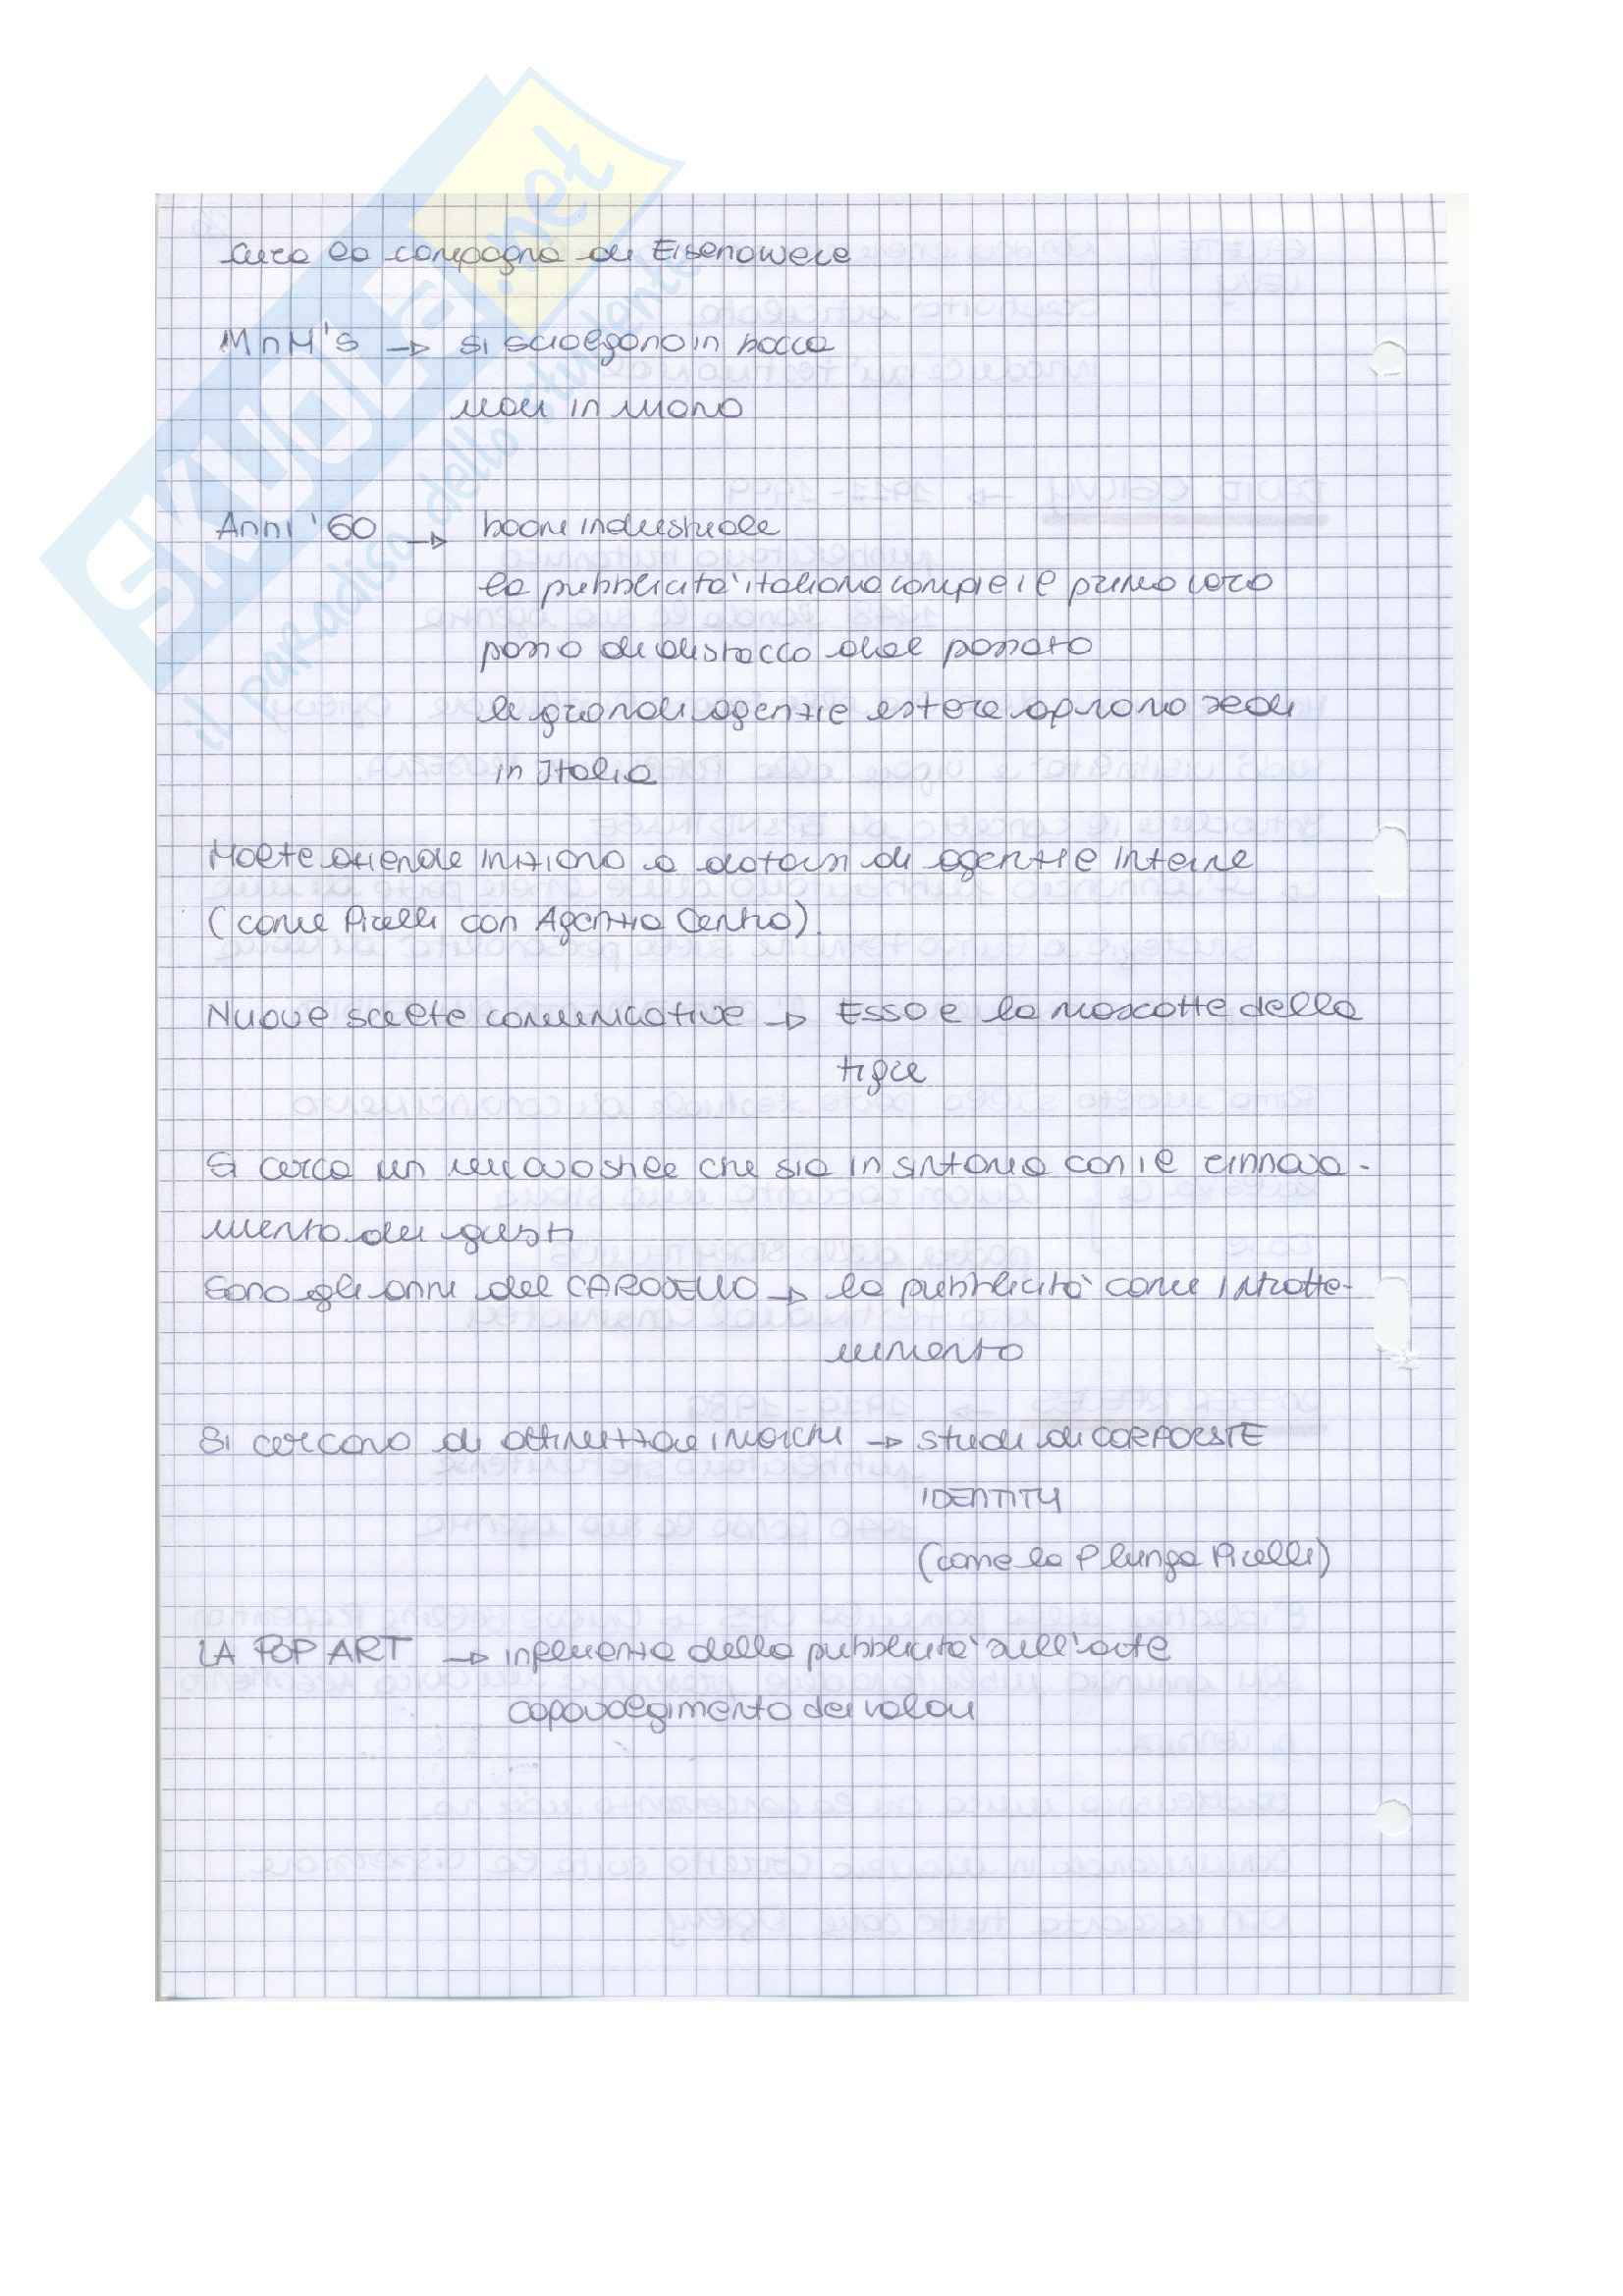 SKUOLA.net
il paradiso dello studente
Cura la campagna di Eisenowere
MnM's → si sciolgono in bocca
non in mano
Anni '60 → boom industriale
la pubblicità italiana compie il primo vero
passo di distacco dal passato
le grandi agenzie estere aprono sedi
in Italia
Molte aziende iniziano a dotarsi di agenzie interne
(come Pirelli con Agenzia Centro)
Nuove scelte comunicative → Esso e la mascotte della
tigre
Si cerca un che sia in sintonia con il rinnova-
mento dei gusti
Sono gli anni del CAROSELLO → la pubblicità come intratte-
nimento
Si cercano di attualizzare i marchi → studi di CORPORATE
IDENTITY
(come la P lunga Pirelli)
LA POP ART → influenza della pubblicità sull'arte
capovolgimento dei valori